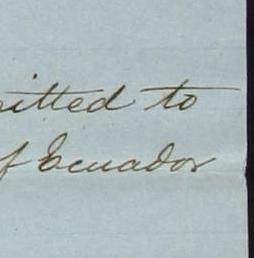 itted to
f Ecuador